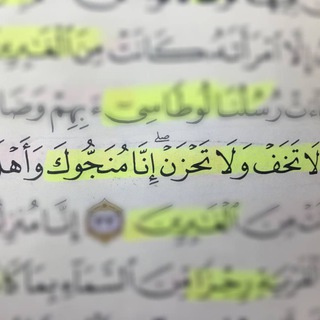 إِلَّا ٱمْرَأَتَهُۥ كَانَتْ مِنَ ٱلْغَٰبِرِينَ
رُسُلُنَا لُوطًا سِىٓءَ بِهِمْ وَضَا
لَا تَخَفْ وَلَا تَحْزَنْ ۖ إِنَّا مُنَجُّوكَ وَأَهْلَ
مِنَ ٱلْغَٰبِرِينَ ٣٣ إِنَّا مُنزِلُ
ٱلْقَرْيَةِ رِجْزًا مِّنَ ٱلسَّمَآءِ بِمَا كَا